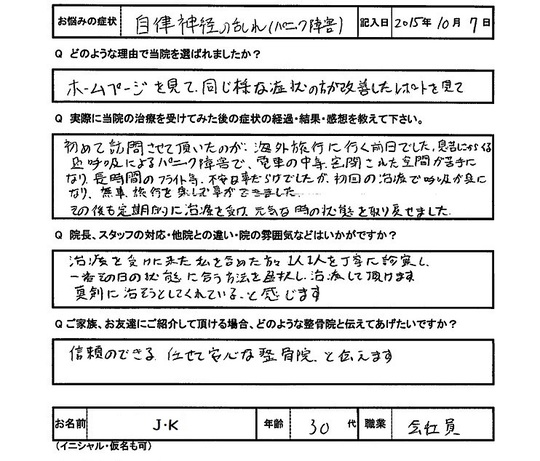 お悩みの症状 自律神経の乱れ(パニック障害) 記入日 2015年 10月 7日
Q どのような理由で当院を選ばれましたか?
ホームページを見て、同じ様な症状の方が改善したレポートを見て
Q 実際に当院の治療を受けてみた後の症状の経過・結果・感想を教えて下さい。
初めて訪問させて頂いたのが、海外旅行に行く前日でした。
呼吸によるパニック障害で、電車の中等 空間された空間が苦手に
なり、長時間のフライト等、不安事だらけでしたが、初回の治療で呼吸が楽に
なり、無事、旅行を楽しむ事ができました。
その後も定期的に治療を受け、元気な時の状態を取り戻せました。
Q 院長、スタッフの対応・他院との違い・院の雰囲気などはいかがですか?
治療を受けに来た私を含めた方々 1人1人を丁寧に診察し、
一番その日の状態に合う方法を選択し、治療して頂けます
真剣に治そうとしてくれている。と感じます
Q ご家族、お友達にご紹介して頂ける場合、どのような整骨院と伝えてあげたいですか?
信頼のできる 任せて安心な整骨院、と伝えます
お名前 J・K 年齢 30 代 職業 会社員
(イニシャル・仮名も可)